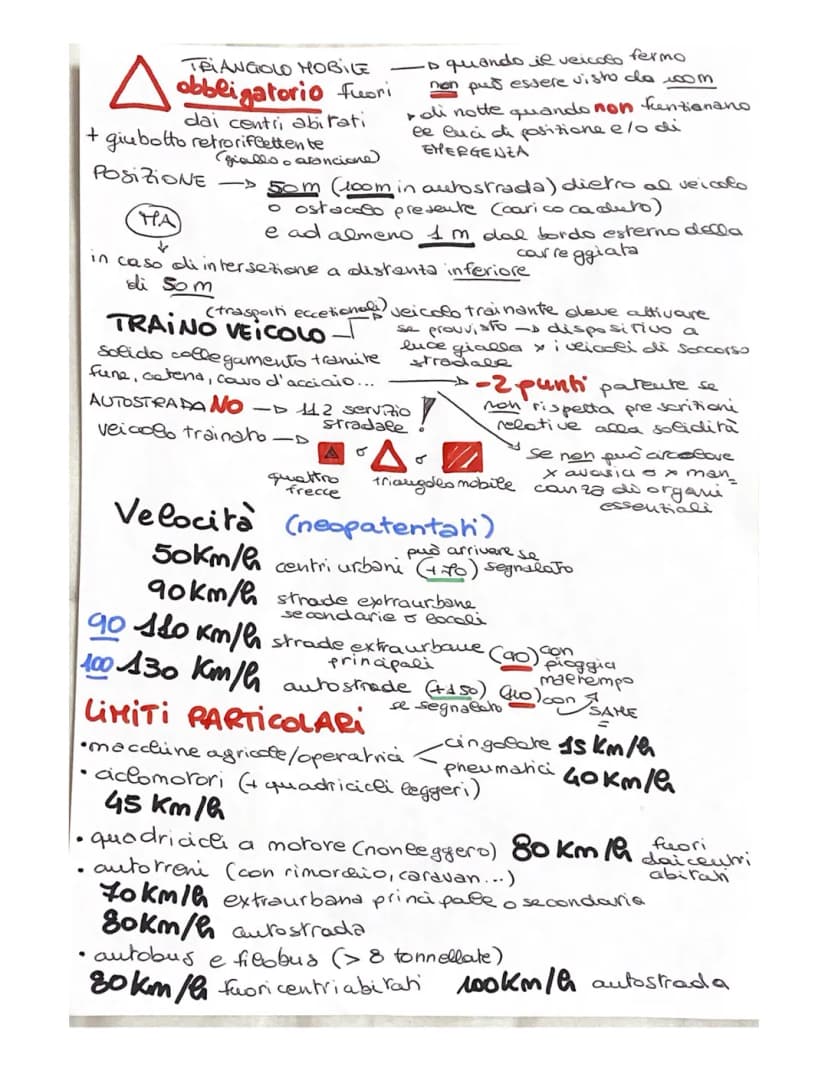 TRIANGOLO MOBILE → quando il veicolo fermo
obbligatorio fuori non può essere visto da 100m
dai centri abitati → di notte quando non funzionano
+ giubotto retroriflettente le luci di posizione e/o di
(giallo o arancione) EMERGENZA
POSIZIONE → 50m (100m in autostrada) dietro al veicolo
o ostacolo presente (carico caduto)
MA e ad almeno 1 m dal bordo esterno della
carreggiata
in caso di intersezione a distanza inferiore
di 50m
(trasporti eccezionali) veicolo trainante deve attivare
TRAINO VEICOLO se provvisto → dispositivo a
luce gialla x i veicoli di soccorso
solido collegamento tramite stradale
fune, catena, cavo d'acciaio... → -2 punti patente se
AUTOSTRADA NO → 112 servizio ! non rispetta prescrizioni
stradale relative alla solidità
veicolo trainato → o o se non può circolare
quattro triangolo mobile x avaria o x man=
frecce canza di organi
essenziali
Velocità (neopatentati)
può arrivare se
50Km/h centri urbani (+70) segnalato
90Km/h strade extraurbane
secondarie o locali
90 110 Km/h strade extraurbane (90) con
principali pioggia
100 130 Km/h maltempo
autostrade (+150) (110) con
se segnalato SAME
LIMITI PARTICOLARI
• macchine agricole/operatrici cingolate 15 Km/h
pneumatici 40 Km/h
• ciclomotori (+ quadricicli leggeri)
45 Km/h
• quadricicli a motore (non leggero) 80 Km/h fuori
dai centri
abitati
• autotreni (con rimorchio, caravan...)
70Km/h extraurbana principale o secondaria
80Km/h autostrada
• autobus e filobus (> 8 tonnellate)
80Km/h fuori centri abitati 100Km/h autostrada